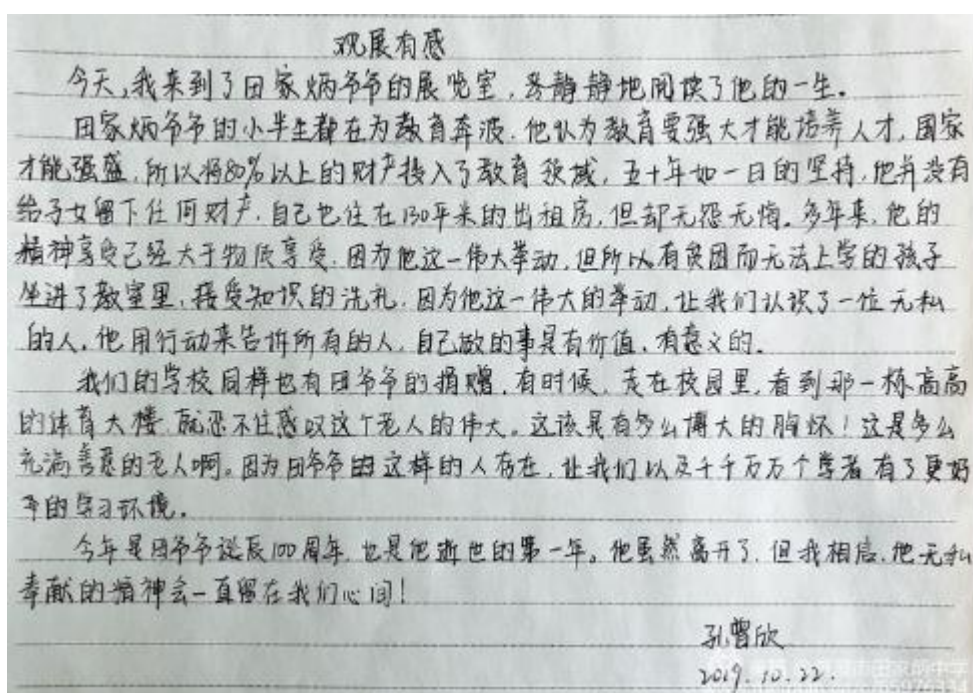 观展有感
今天,我来到了田家炳爷爷的展览室,静静地阅读了他的一生。
田家炳爷爷的小半生都在为教育奔波.他认为教育要强大才能培养人才,国家
才能强盛,所以将80%以上的财产投入了教育领域,五十年如一日的坚持,他并没有
给子女留下任何财产,自己也住在130平米的出租房,但却无怨无悔。多年来,他的
精神享受已经大于物质享受.因为他这一伟大举动,但所以有贫困而无法上学的孩子
坐进了教室里,接受知识的洗礼.因为他这一伟大的举动,让我们认识了一位无私
的人.他用行动来告诉所有的人,自己做的事是有价值,有意义的。
我们的学校同样也有田爷爷的捐赠,有时候,走在校园里,看到那一栋高高
的体育大楼,就忍不住感叹这个老人的伟大。这该是有多么博大的胸怀!这是多么
充满善意的老人啊。因为田爷爷这样的人存在,让我们以及千千万万个学者有了更好
的学习环境。
今年是田爷爷诞辰100周年,也是他逝世的第一年。他虽然离开了,但我相信,他无私
奉献的精神会一直留在我们心间!
孔曾欣
2019.10.22.